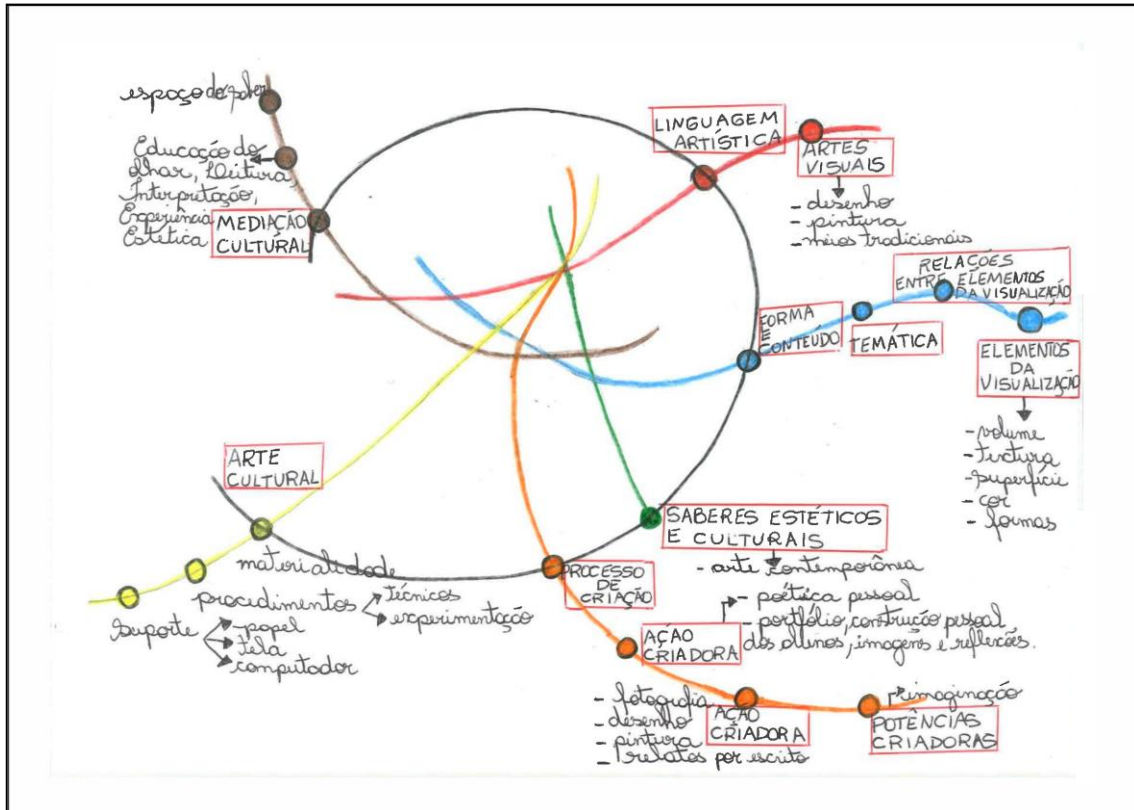 espaço do saber
Educação do
olhar, leitura,
Interpretação,
Experiência
Estética
MEDIAÇÃO
CULTURAL
LINGUAGEM
ARTÍSTICA
ARTES
VISUAIS
- desenho
- pintura
- meios tradicionais
FORMA
E
CONTEÚDO
TEMÁTICA
RELAÇÕES
ENTRE ELEMENTOS
DA VISUALIZAÇÃO
ELEMENTOS
DA
VISUALIZAÇÃO
- volume
- textura
- superfície
- cor
- formas
ARTE
CULTURAL
materialidade
procedimentos
técnicos
experimentação
suporte
papel
tela
computador
SABERES ESTÉTICOS
E CULTURAIS
- arte contemporânea
PROCESSO
DE
CRIAÇÃO
AÇÃO
CRIADORA
- poética pessoal
- portfólio, construção pessoal
dos alunos, imagens e reflexões.
- fotografia
- desenho
- pintura
- relatos por escrito
AÇÃO
CRIADORA
imaginação
POTÊNCIAS
CRIADORAS